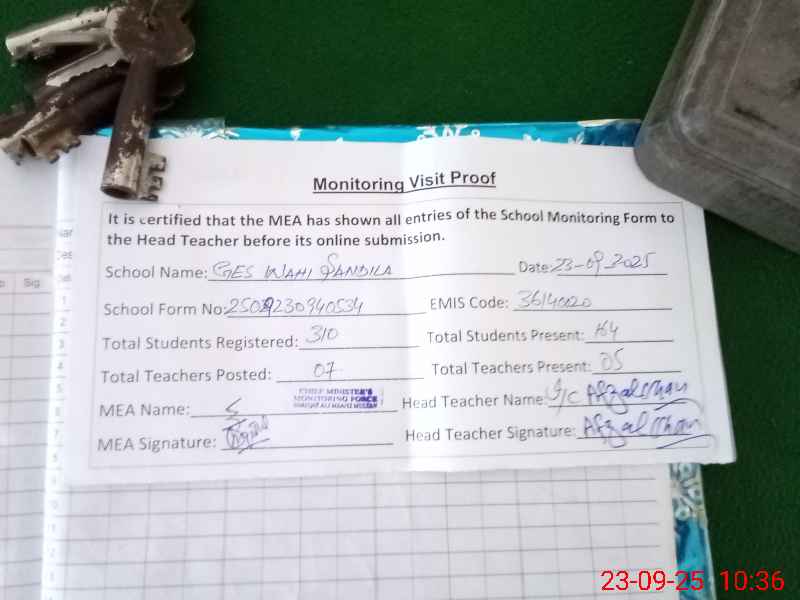 Monitoring Visit Proof
It is certified that the MEA has shown all entries of the School Monitoring Form to
the Head Teacher before its online submission.
School Name: GES WAHI SANDILA Date: 23-09-2025
School Form No: 2509230940534 EMIS Code: 36140020
Total Students Registered: 310 Total Students Present: 164
Total Teachers Posted: 07 Total Teachers Present: 05
CHIEF MINISTER'S
MONITORING FORCE
MEA Name: Head Teacher Name: I/C Afzal Khan
MEA Signature: Head Teacher Signature: Afzal Khan
Sig.
1
2
3
4
5
6
7
8
23-09-25 10:36